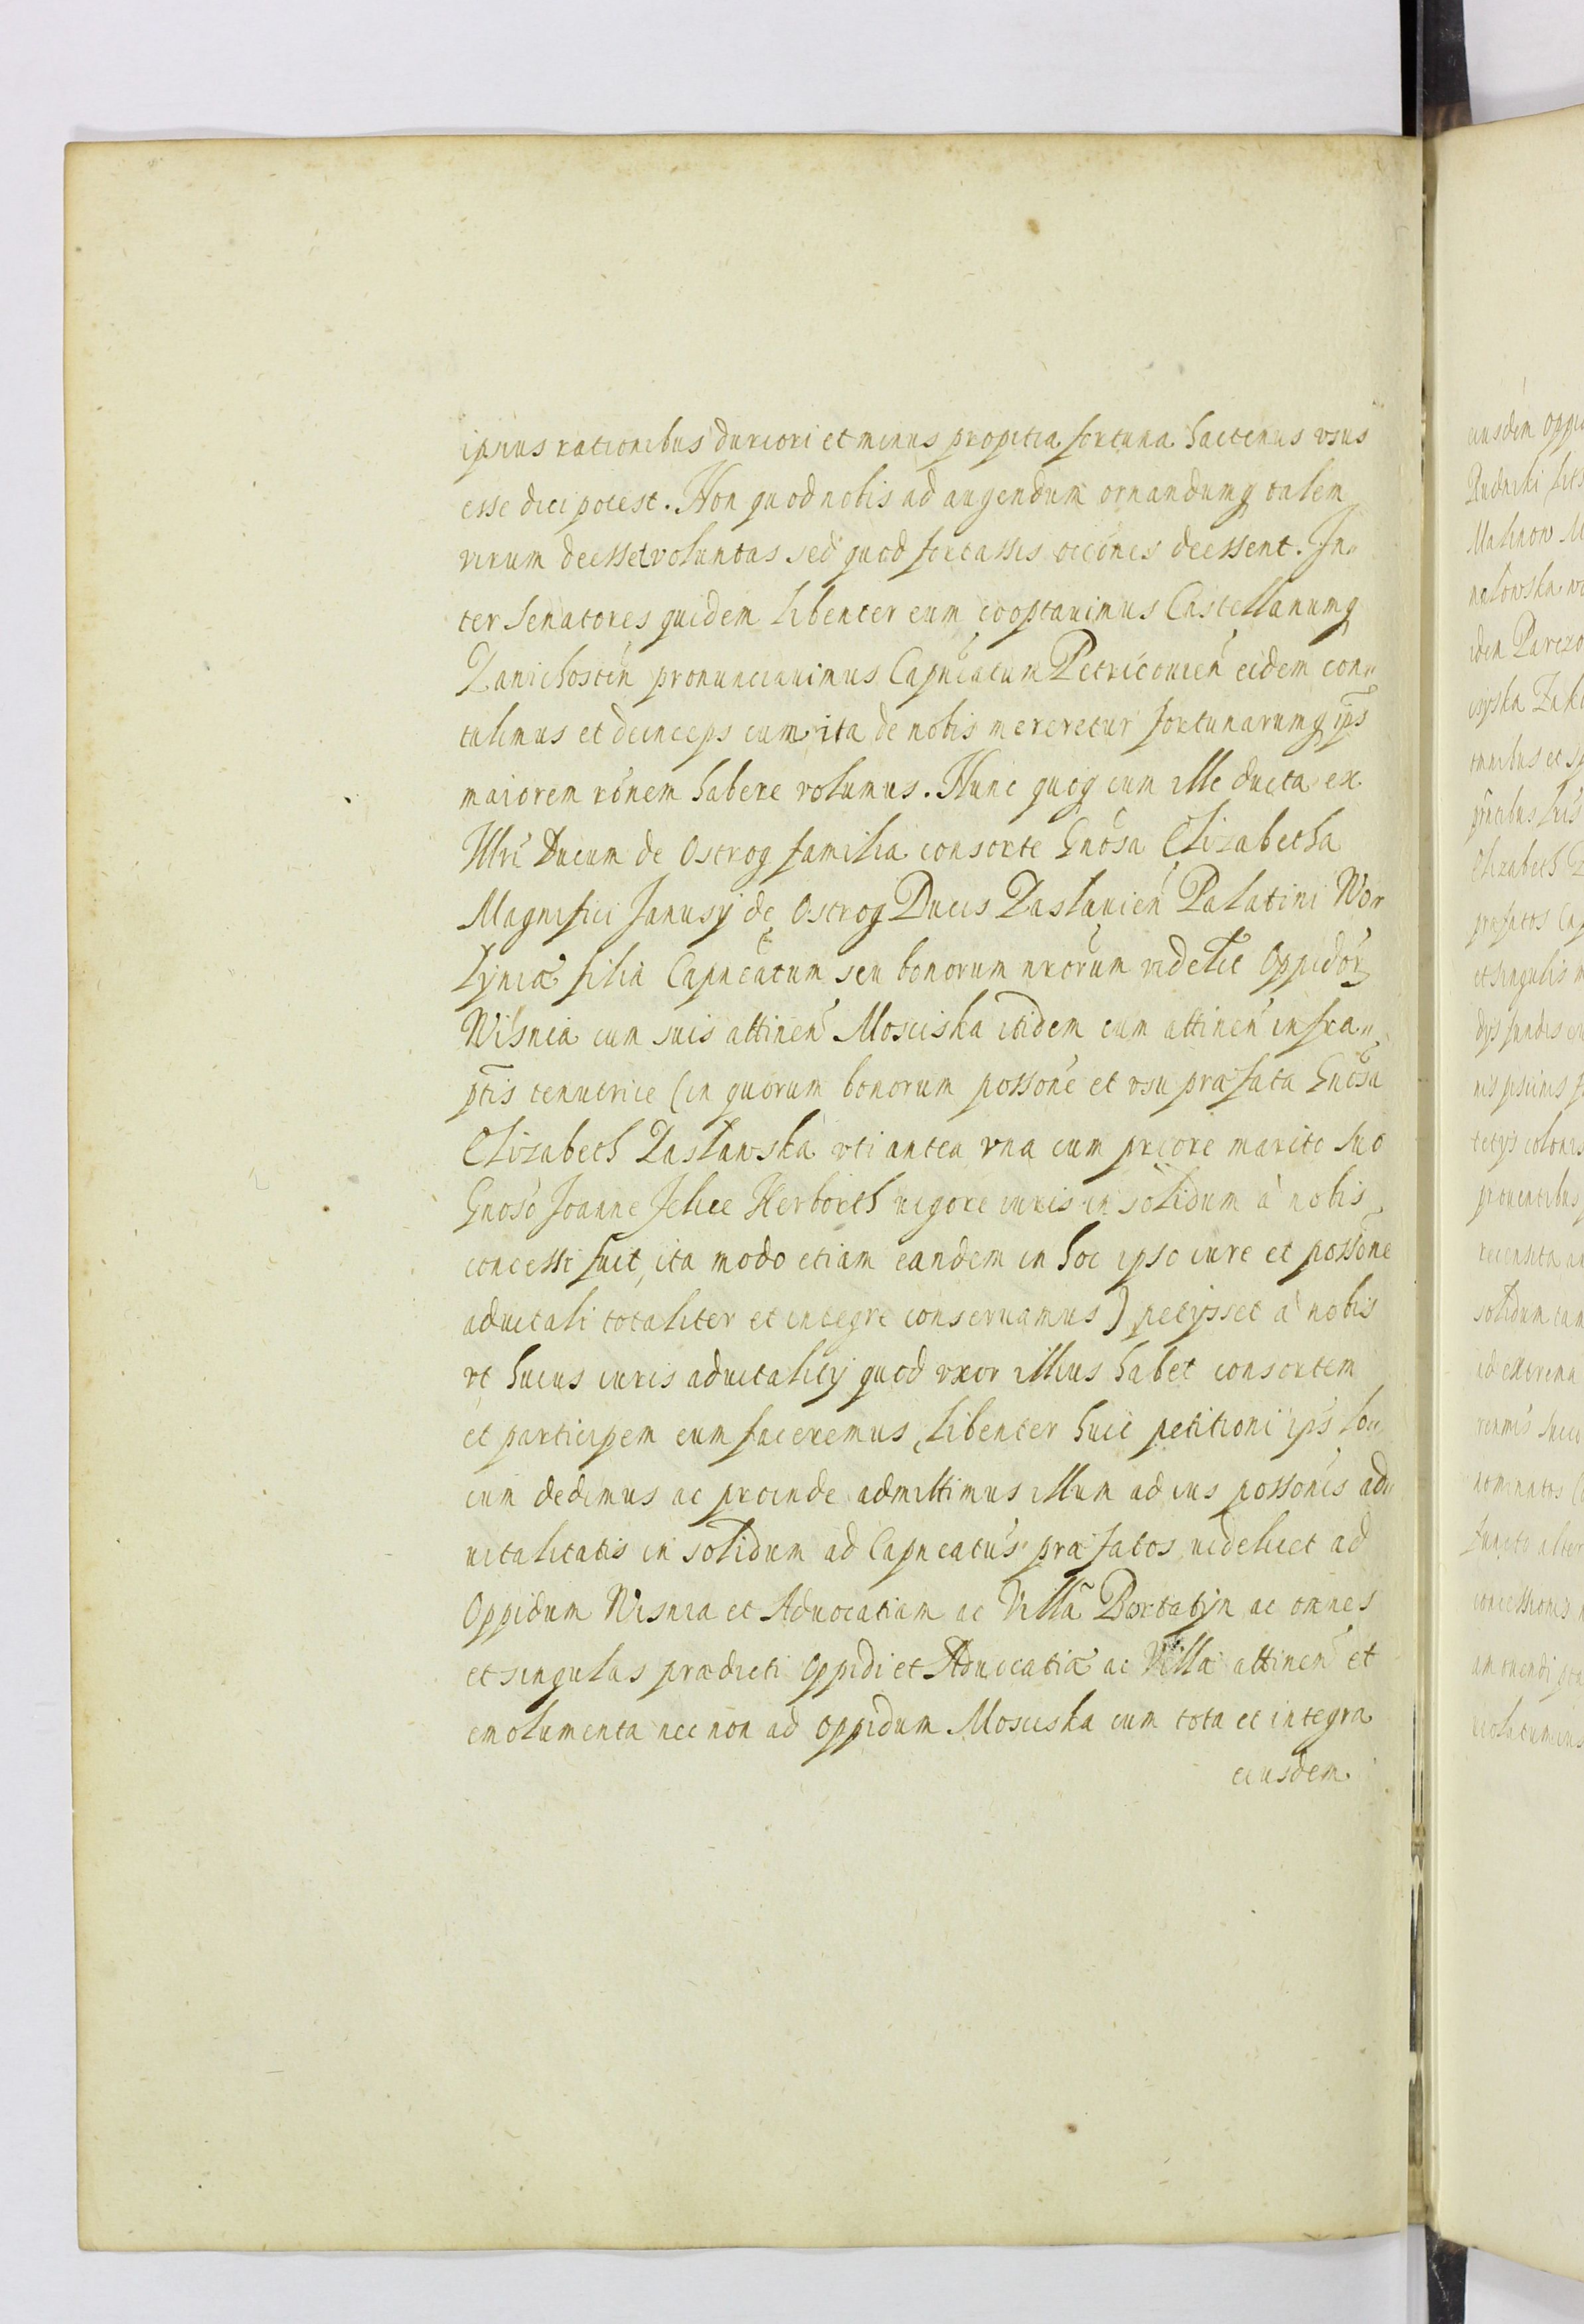 ipsius rationibus duriori et minus propitia fortuna hactenus vsus
esse dici potest. Non quod nobis ad augendum ornandumq talem
virum deesset voluntas sed quod fortassis occones deessent. In„
ter Senatores quidem libenter eum cooptauimus Castellanumq
Zanichosten pronunciauimus Capneatum Petricouien eidem con„
tulimus et deinceps cum ita de nobis mereretur fortunarumq ips
maiorem ronem habere volumus. Nunc quoq cum ille ducta ex
Illri Ducum de Ostrog familia consorte Gnosa Elizabetha
Magnifici Janusÿ de Ostrog Ducis Zaslauien Palatini Wor
Lyniæ filia Capneatum seu bonorum nrorum videlit Oppidor
Wisnia cum suis attinen Mosciska itidem cum attinen infra„
ptis tenutrice (in quorum bonorum possone et vsu præfata Gnosa
Elizabeth Zaslawska vti antea vna cum priore marito suo
Gnoso Joanne Felice Herborth vigore iuris in solidum à nobis
concessi fuit, ita modo etiam eandem in hoc ipso iure et possone
aduitali totaliter et integre conseruamus) petÿsset à nobis
vt huius iuris aduitalitÿ quod vxor illius habet consortem
et participem eum faceremus, libenter huic petitioni ips lo„
cum dedimus ac proinde admittimus illum ad ius possonis ad„
uitalitatis in solidum ad Capneatus præfatos videlicet ad
Oppidum Wisnia et Aduocatiam ac Villa Bortatÿn ac omnes
et singulas prædicti Oppidi et Aduocatiæ ac Villa attinen et
emolumenta nec non ad oppidum Mosciska cum tota et integra
eiusdem